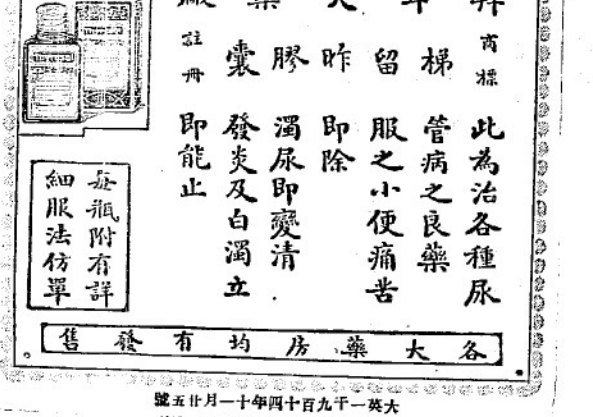 商標
梯留昨膠囊
註冊
此為治各種尿
管病之良藥
服之小便痛苦
即除
濁尿即變清
發炎及白濁立
即能止
每瓶附有詳
細服法仿單
各大藥房均有發售
大英一千九百十四年十一月廿五號